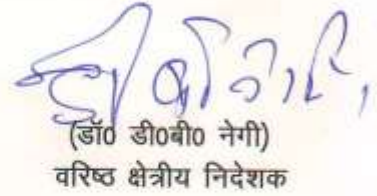 (डॉ0 डी0बी0 नेगी)
वरिष्ठ क्षेत्रीय निदेशक